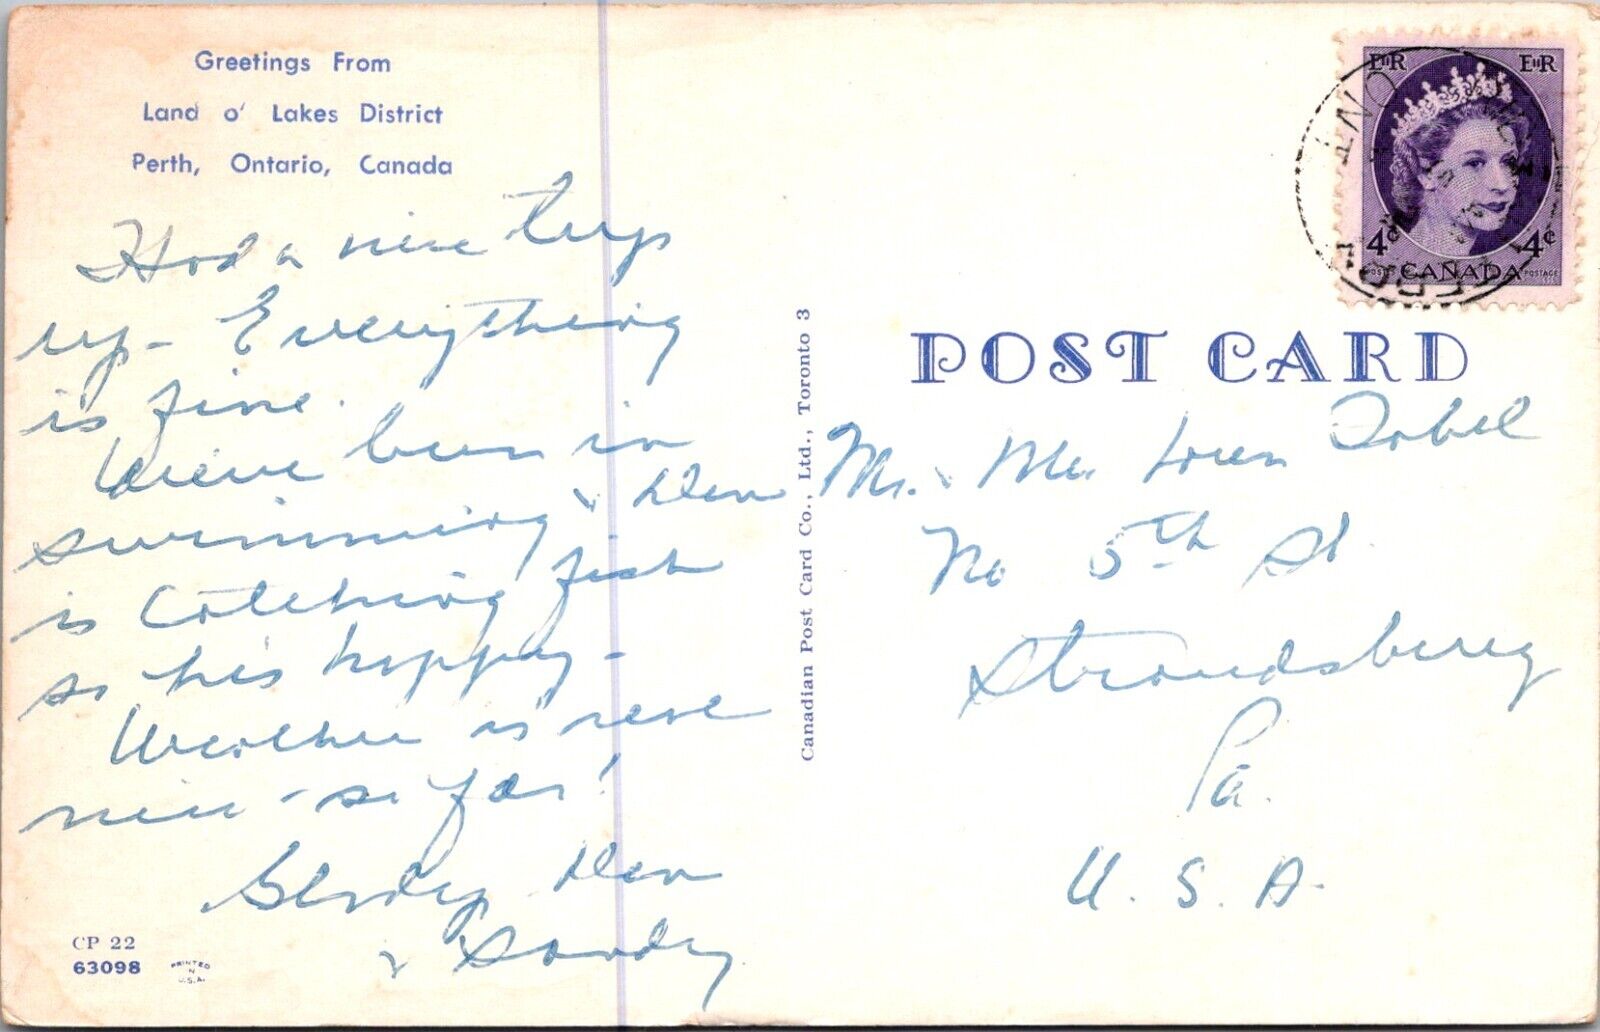 Greetings From
Land o' Lakes District
Perth, Ontario, Canada
Had a nice trip
up - Everything
is fine.
We've been in
swimming & Den
is catching fish
so he's happy -
Weather is real
nice - so far!
Den
& Sandy
CP 22
63098
PRINTED
IN
U.S.A.
Canadian Post Card Co., Ltd., Toronto 3
EIIR EIIR
ONT
4¢ 4¢
POSTES CANADA POSTAGE
POST CARD
Mr. & Mrs. Loren Tobel
No 5th St.
Stroudsburg
Pa.
U. S. A.